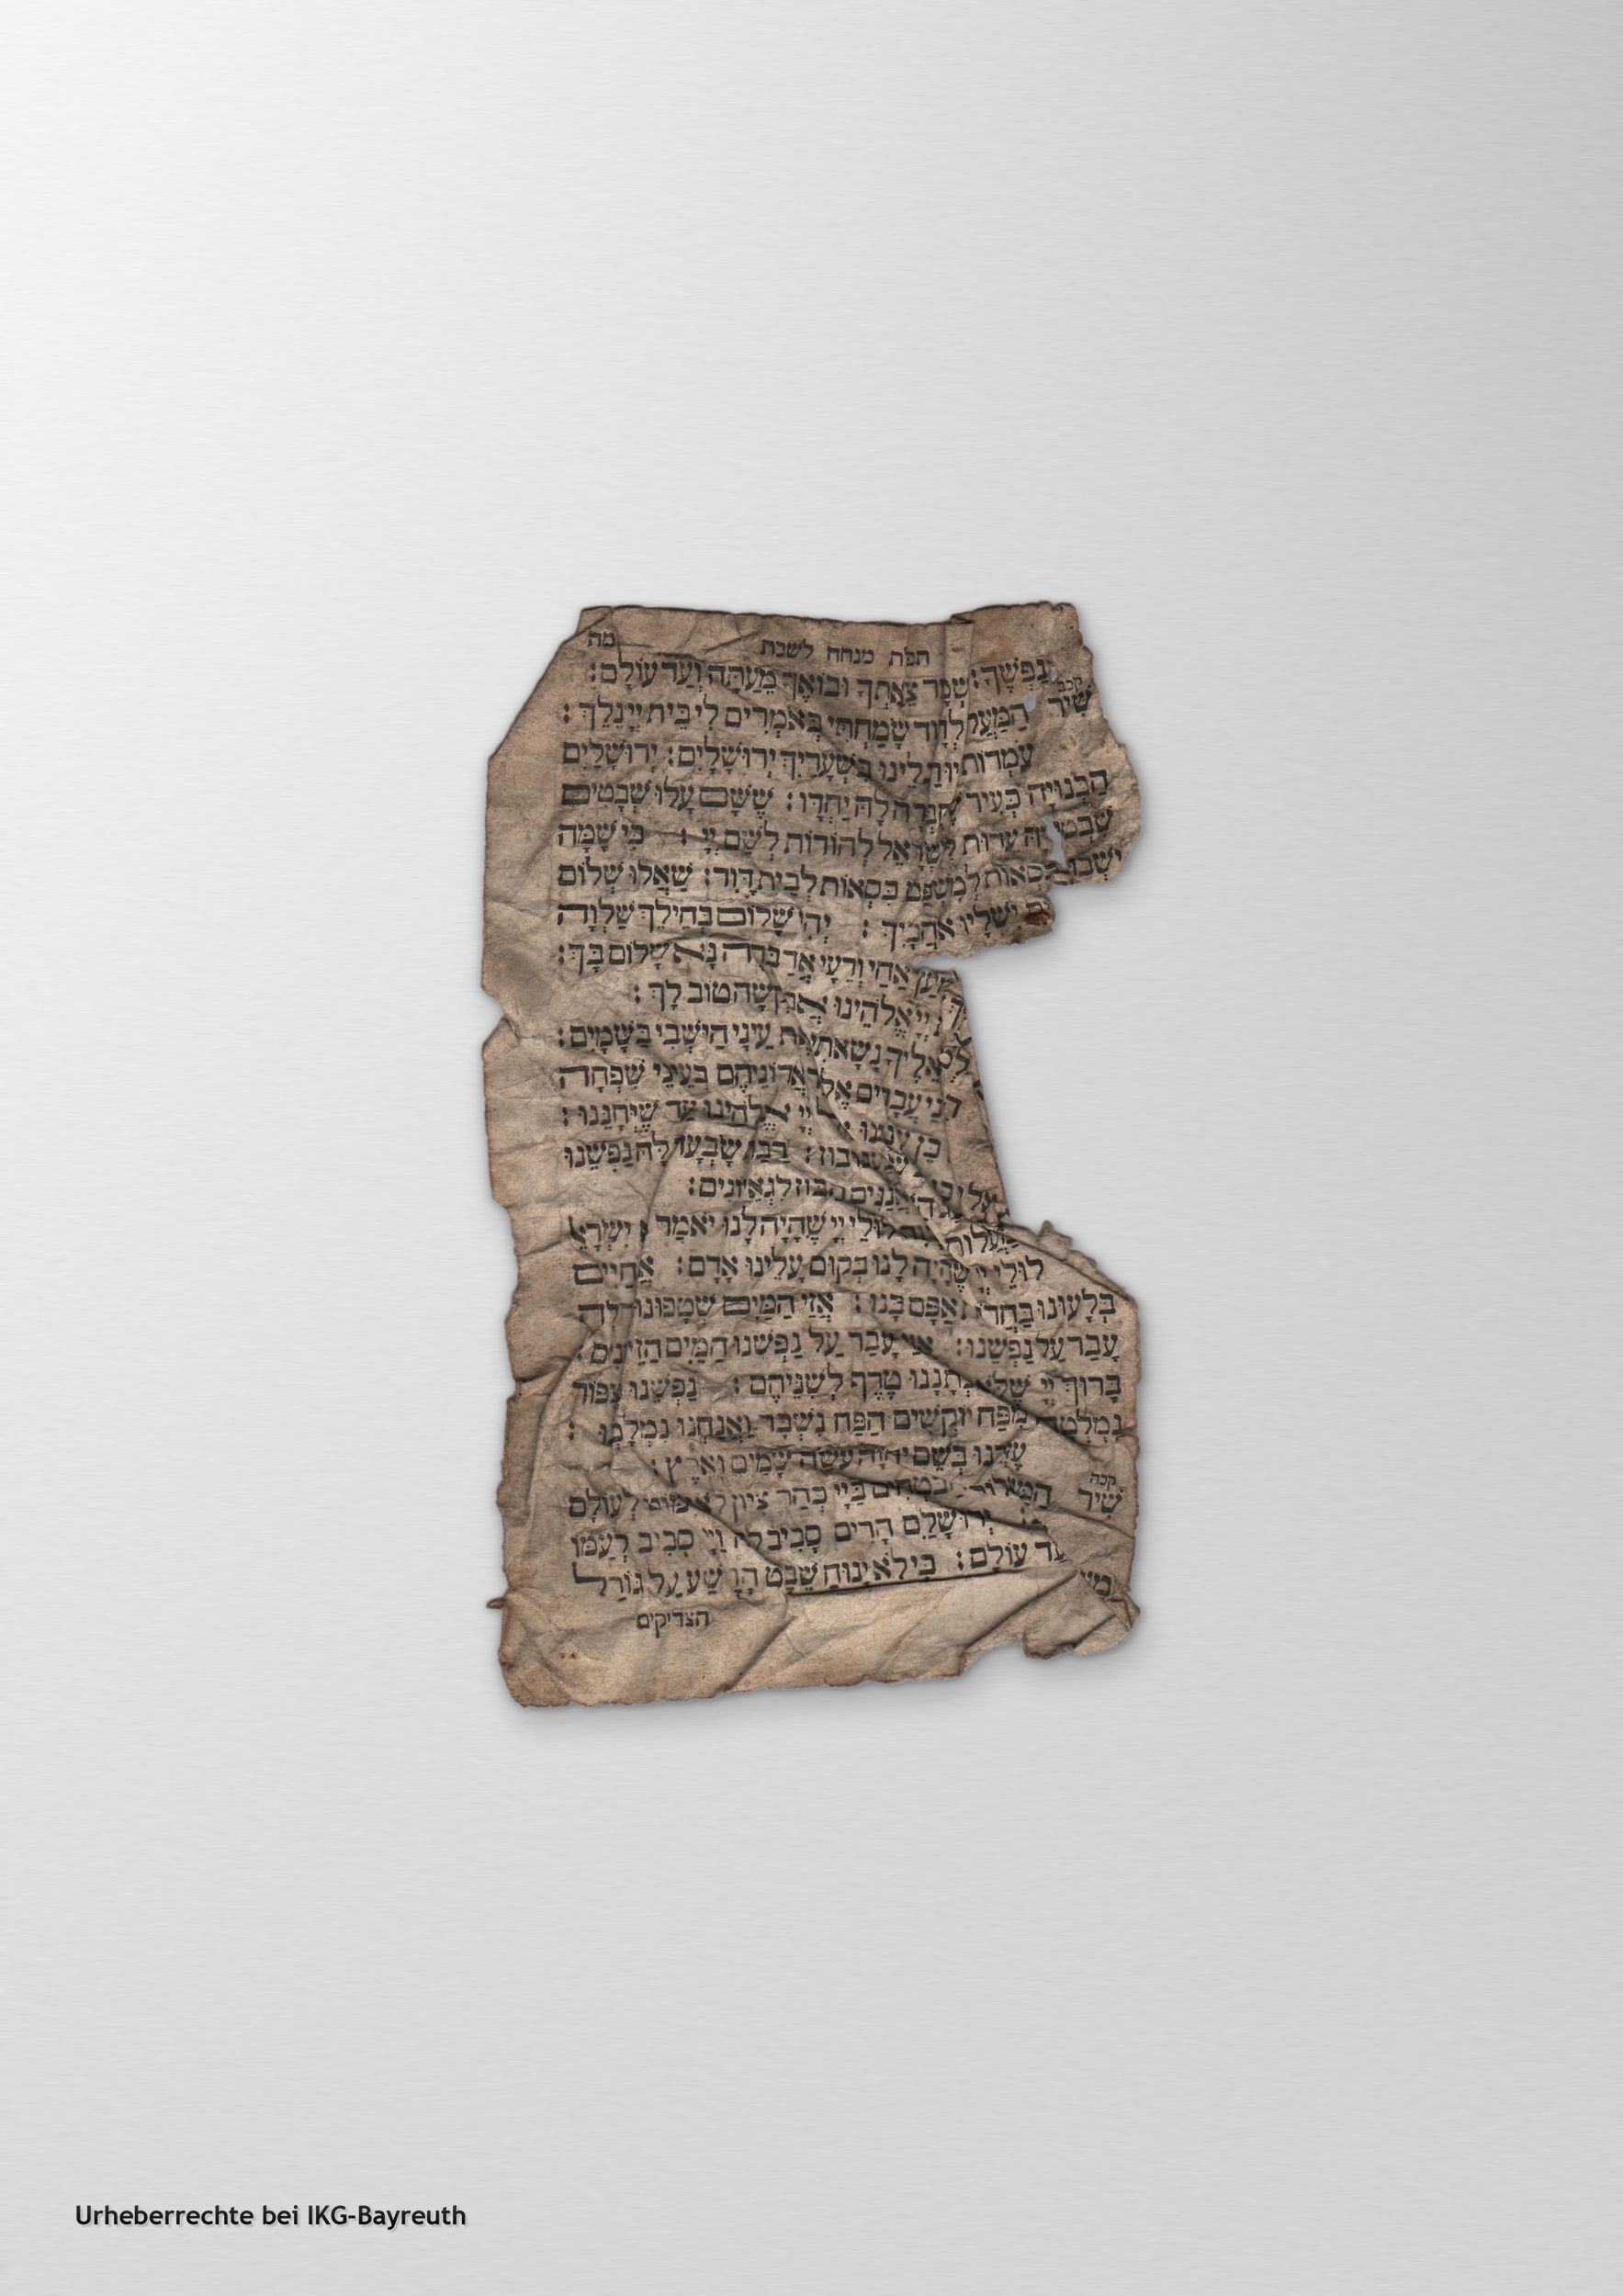 תפלת מנחה לשבת מה
נַפְשֶׁךָ: יִשְׁמָר צֵאתְךָ וּבוֹאֶךָ מֵעַתָּה וְעַד עוֹלָם:
קכב
שִׁיר הַמַּעֲ לְדָוִד שָׂמַחְתִּי בְּאֹמְרִים לִי בֵּית יְיָ נֵלֵךְ:
עֹמְדוֹת הָיוּ רַגְלֵינוּ בִּשְׁעָרַיִךְ יְרוּשָׁלָיִם: יְרוּשָׁלַיִם
הַבְּנוּיָה כְּעִיר שֶׁחֻבְּרָה לָּהּ יַחְדָּו: שֶׁשָּׁם עָלוּ שְׁבָטִים
שִׁבְטֵי יָהּ עֵדוּת לְיִשְׂרָאֵל לְהוֹדוֹת לְשֵׁם יְיָ: כִּי שָׁמָּה
יָשְׁבוּ כִסְאוֹת לְמִשְׁפָּט כִּסְאוֹת לְבֵית דָּוִד: שַׁאֲלוּ שְׁלוֹם
יִשְׁלָיוּ אֹהֲבָיִךְ: יְהִי שָׁלוֹם בְּחֵילֵךְ שַׁלְוָה
לְמַעַן אַחַי וְרֵעָי אֲדַבְּרָה נָּא שָׁלוֹם בָּךְ:
יְיָ אֱלֹהֵינוּ אֲבַקְשָׁה טוֹב לָךְ:
אֵלֶיךָ נָשָׂאתִי אֶת עֵינַי הַיֹּשְׁבִי בַּשָּׁמָיִם:
הִנֵּה עֲבָדִים אֶל אֲדוֹנֵיהֶם כְּעֵינֵי שִׁפְחָה
כֵּן עֵינֵינוּ אֶל יְיָ אֱלֹהֵינוּ עַד שֶׁיְּחָנֵּנוּ:
שָׂבַעְנוּ בוּז: רַבַּת שָׂבְעָה לָּהּ נַפְשֵׁנוּ
הַשַּׁאֲנַנִּים הַבּוּז לִגְאֵיוֹנִים:
לוּלֵי יְיָ שֶׁהָיָה לָנוּ יֹאמַר נָא יִשְׂרָאֵ
לוּלֵי יְיָ שֶׁהָיָה לָנוּ בְּקוּם עָלֵינוּ אָדָם: אֲזַי חַיִּים
בְּלָעוּנוּ בַּחֲרוֹת אַפָּם בָּנוּ: אֲזַי הַמַּיִם שְׁטָפוּנוּ נַחְלָה
עָבַר עַל נַפְשֵׁנוּ: אֲזַי עָבַר עַל נַפְשֵׁנוּ הַמַּיִם הַזֵּידוֹנִים:
בָּרוּךְ יְיָ שֶׁלֹּא נְתָנָנוּ טֶרֶף לְשִׁנֵּיהֶם: נַפְשֵׁנוּ כְּצִפּוֹר
נִמְלְטָה מִפַּח יוֹקְשִׁים הַפַּח נִשְׁבָּר וַאֲנַחְנוּ נִמְלָטְנוּ:
עֶזְרֵנוּ בְּשֵׁם יְהוָה עֹשֵׂה שָׁמַיִם וָאָרֶץ:
קכה
שִׁיר הַמַּעֲלוֹת הַבֹּטְחִים בַּיְיָ כְּהַר צִיּוֹן לֹא יִמּוֹט לְעוֹלָם
יְרוּשָׁלַםִ הָרִים סָבִיב לָהּ וַיְיָ סָבִיב לְעַמּוֹ
עַד עוֹלָם: כִּי לֹא יָנוּחַ שֵׁבֶט הָרֶשַׁע עַל גּוֹרַל
הצדיקים
Urheberrechte bei IKG-Bayreuth